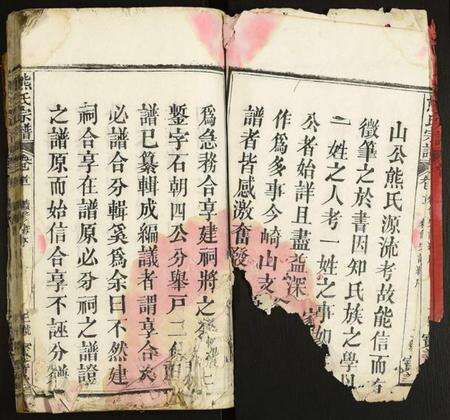 山公熊氏源流考故能信而有
徵筆之於書因知氏族之學以
一姓之人考一姓之事如
公者始詳且盡益深
作爲多事今崎山支
譜者皆感激奮發
爲急務合享建祠將之
鏨字石朝四公分舉戸二
譜已纂輯成編議者謂享合矣
必譜合分輯奚爲余曰不然建
祠合享在譜原必分祠之譜證
之譜原而始信合享不誣分譜
熊氏宗譜
卷首
氏宗譜